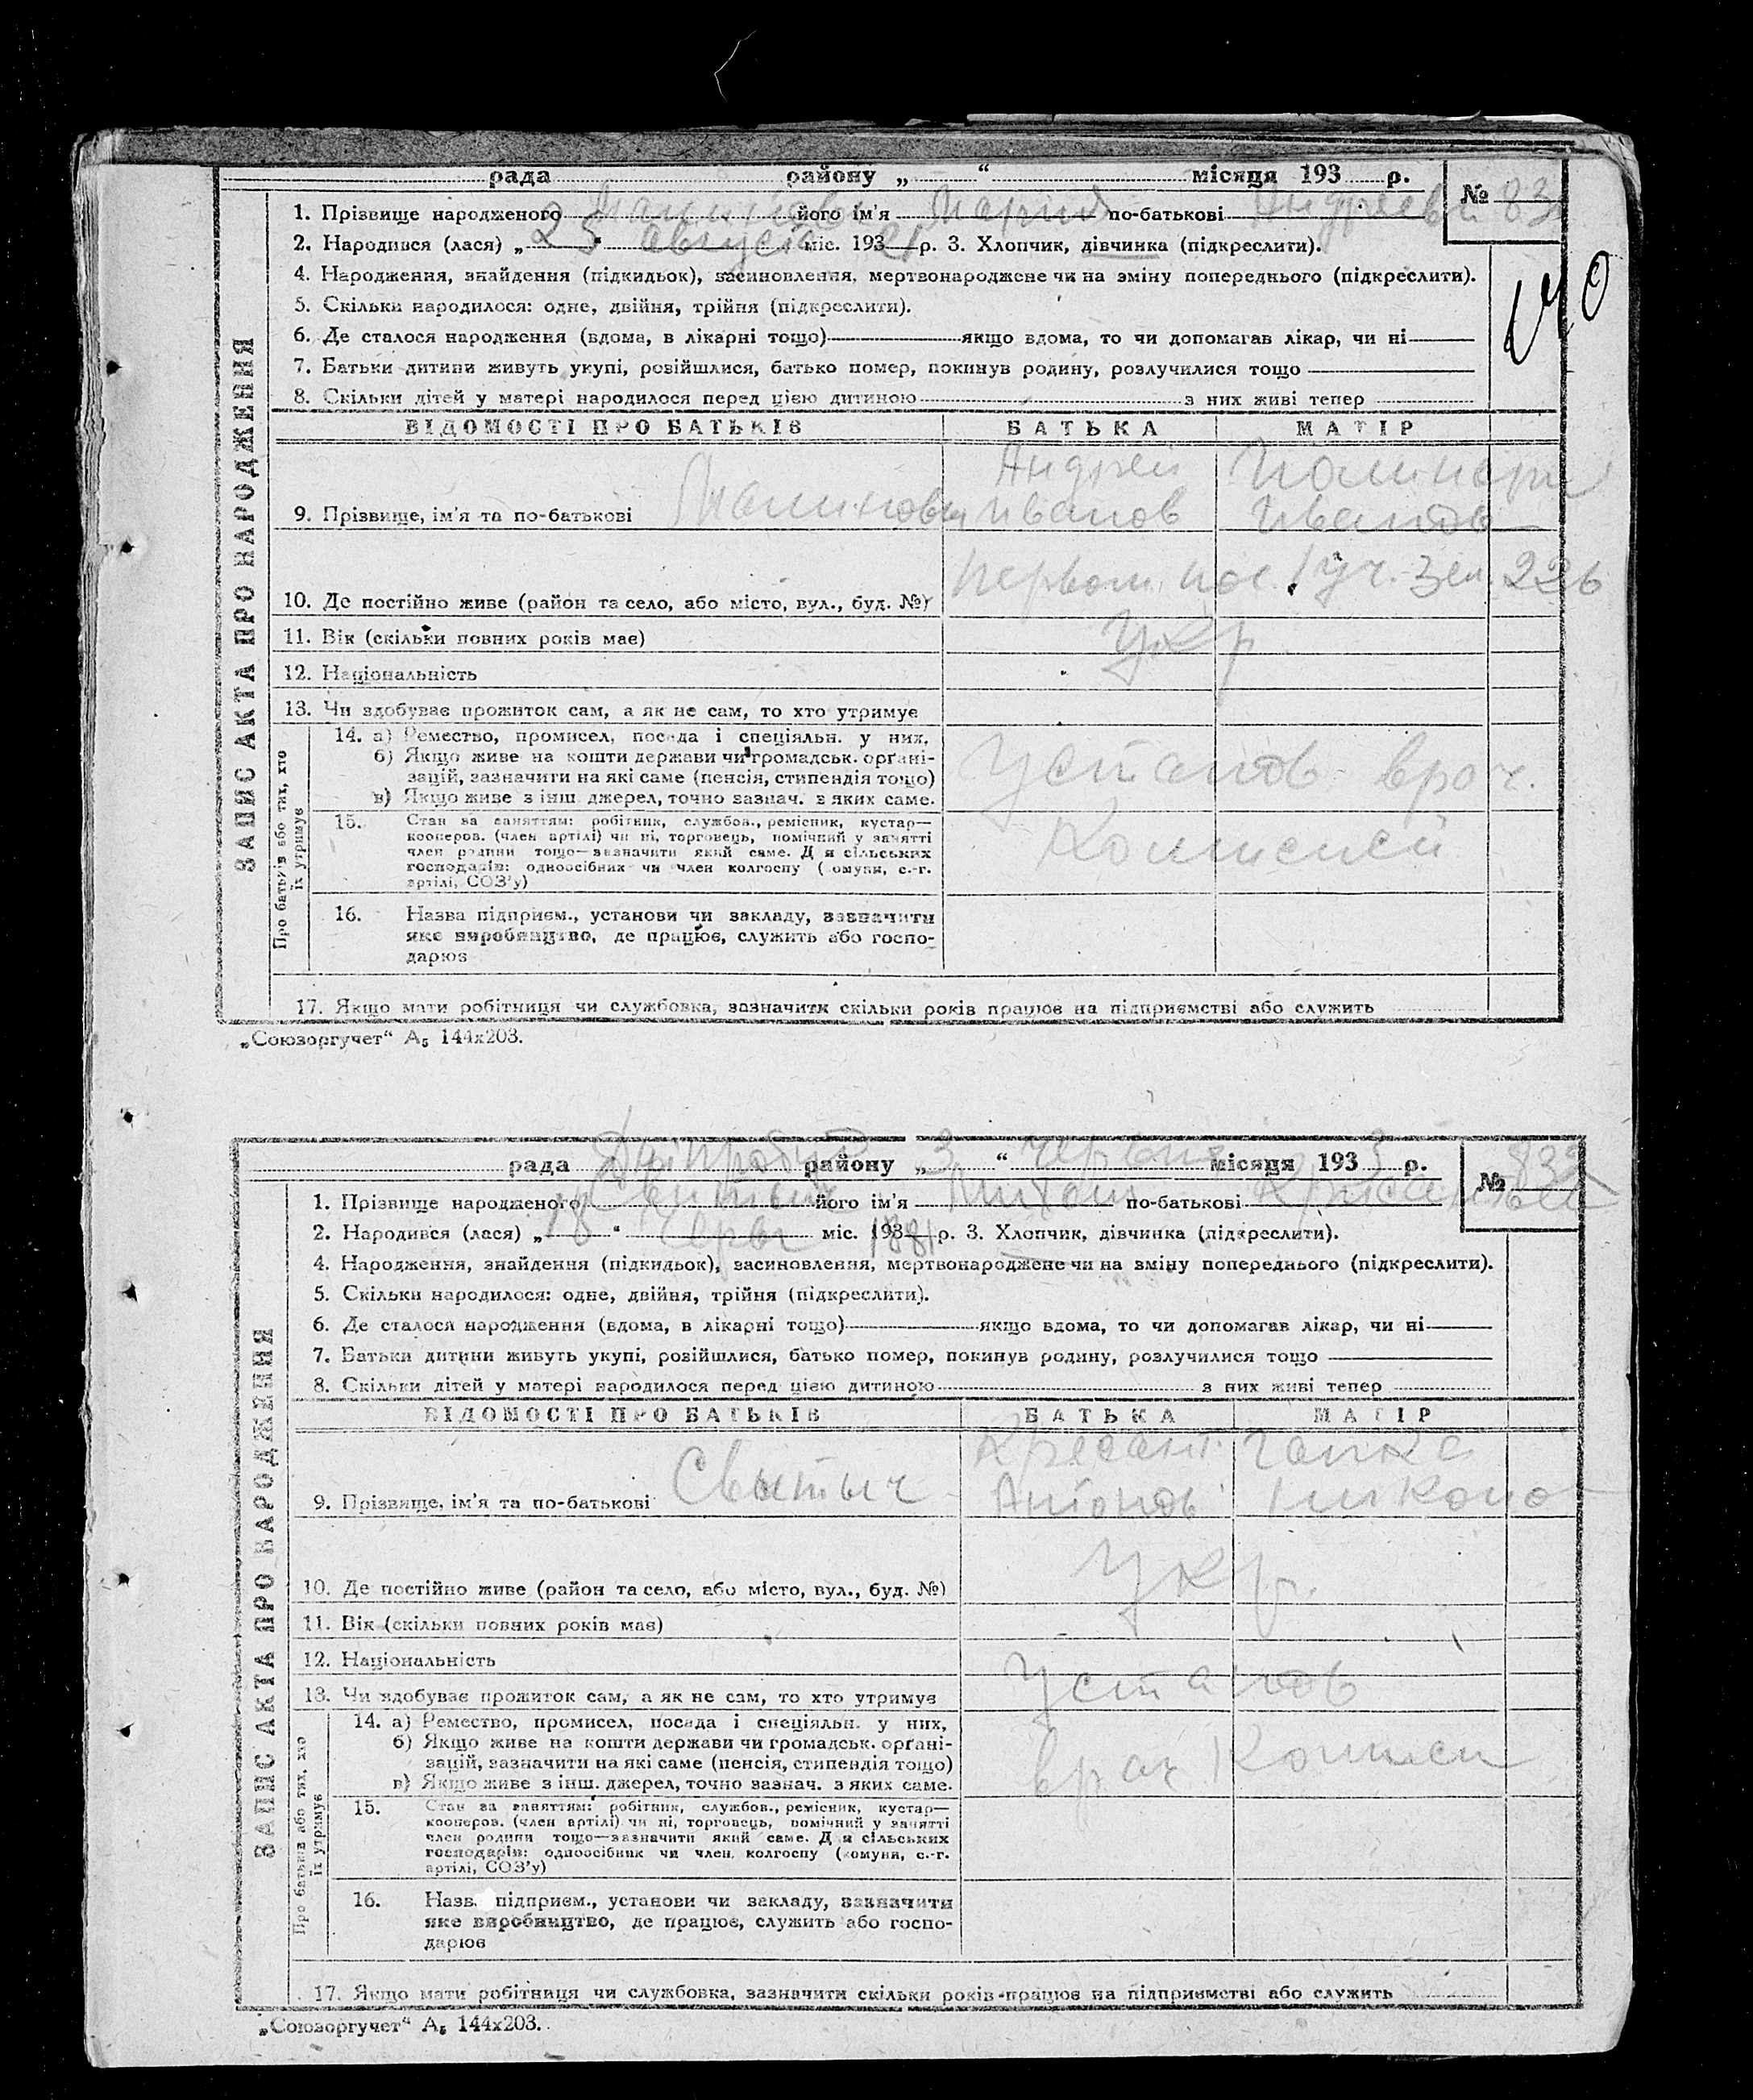 рада района „ “ місяця 193 р. № 83
1. Прізвище народженого його ім'я Мария по-батькові Андреев
2. Народився (лася) „ 25 “ августа міс. 193 21 р. 3. Хлопчик, дівчинка (підкреслити).
4. Народження, знайдення (підкидьок), засиновлення, мертвонароджене чи на зміну попереднього (підкреслити).
5. Скільки народилося: одне, двійня, трійня (підкреслити).
6. Де сталося народження (вдома, в лікарні тощо) якщо вдома, то чи допомагав лікар, чи ні
7. Батьки дитини живуть укупі, розійшлися, батько помер, покинув родину, розлучилися тощо
8. Скільки дітей у матері народилося перед цією дитиною з них живі тепер
ЗАПИС АКТА ПРО НАРОДЖЕННЯ
ВІДОМОСТІ ПРО БАТЬКІВ БАТЬКА МАТІР
Андрей
9. Прізвище, ім'я та по-батькові Иванов Иванов
10. Де постійно живе (район та село, або місто, вул., буд. №) первом. пос. 1 уч. зем. 226
11. Вік (скільки повних років має) Укр
12. Національність
13. Чи здобуває прожиток сам, а як не сам, то хто утримує
Про батьків або тих, хто їх утримує
14. а) Ремество, промисел, посада і спеціяльн. у них,
б) Якщо живе на кошти держави чи громадськ. орґані-
зацій, зазначити на які саме (пенсія, стипендія тощо)
в) Якщо живе з інш. джерел, точно зазнач. з яких саме.
Установ. врач.
15. Стан за заняттям: робітник, службов., ремісник, кустар—
кооперов. (член артілі) чи ні, торговець, помічний у занятті
член родини тощо—зазначити який саме. Д я сільських
господарів: одноосібник чи член колгоспу ( омуни, с.-г.
артілі, СОЗ'у)
Комисией
16. Назва підприєм., установи чи закладу, зазначити
яке виробництво, де працює, служить або госпо-
дарює
17. Якщо мати робітниця чи службовка, зазначити скільки років працює на підприємстві або служить
„Союзоргучет“ А₅ 144х203.
рада района „ 3 “ червня місяця 193 3 р. № 832
1. Прізвище народженого його ім'я по-батькові
2. Народився (лася) „ 18 “ червн міс. 193 1881 р. 3. Хлопчик, дівчинка (підкреслити).
4. Народження, знайдення (підкидьок), засиновлення, мертвонароджене чи на зміну попереднього (підкреслити).
5. Скільки народилося: одне, двійня, трійня (підкреслити).
6. Де сталося народження (вдома, в лікарні тощо) якщо вдома, то чи допомагав лікар, чи ні
7. Батьки дитини живуть укупі, розійшлися, батько помер, покинув родину, розлучилися тощо
8. Скільки дітей у матері народилося перед цією дитиною з них живі тепер
ЗАПИС АКТА ПРО НАРОДЖЕННЯ
ВІДОМОСТІ ПРО БАТЬКІВ БАТЬКА МАТІР
Гапка
9. Прізвище, ім'я та по-батькові Свитыч Антонов
10. Де постійно живе (район та село, або місто, вул., буд. №) Укр.
11. Вік (скільки повних років має)
12. Національність
13. Чи здобуває прожиток сам, а як не сам, то хто утримує Установ
Про батьків або тих, хто їх утримує
14. а) Ремество, промисел, посада і спеціяльн. у них,
б) Якщо живе на кошти держави чи громадськ. орґані-
зацій, зазначити на які саме (пенсія, стипендія тощо)
в) Якщо живе з інш. джерел, точно зазнач. з яких саме.
врач Комисси
15. Стан за заняттям: робітник, службов., ремісник, кустар—
кооперов. (член артілі) чи ні, торговець, помічний у занятті
член родини тощо—зазначити який саме. Д я сільських
господарів: одноосібник чи член колгоспу (комуни, с.-г.
артілі, СОЗ'у)
16. Назв. підприєм., установи чи закладу, зазначити
яке виробництво, де працює, служить або госпо-
дарює
17. Якщо мати робітниця чи службовка, зазначити скільки років працює на підприємстві або служить
„Союзоргучет“ А₅ 144х203.